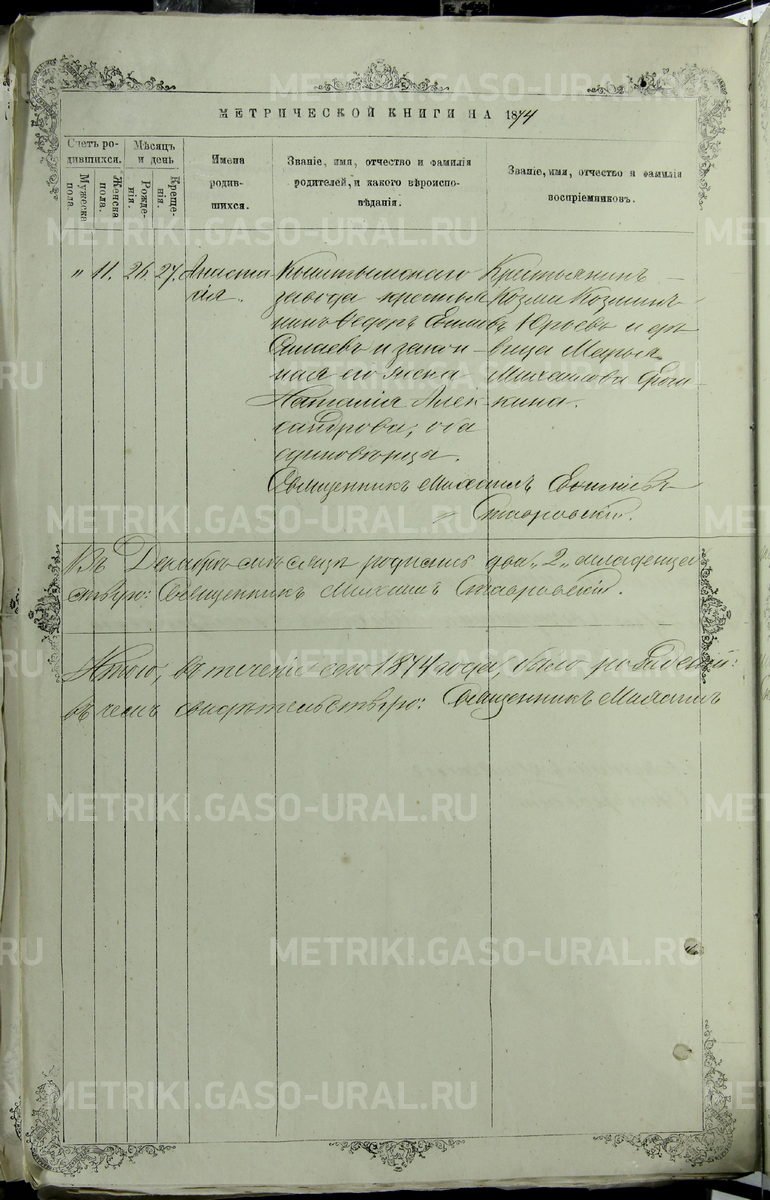 МЕТРИЧЕСКОЙ КНИГИ НА 1874
Счетъ родившихся.
Мужеска пола.
Женска пола.
Мѣсяцъ и день
Рожденія.
Крещенія.
Имена родившихся.
Званіе, имя, отчество и фамилія родителей, и какого вѣроисповѣданія.
Званіе, имя, отчество и фамилія воспріемниковъ.
„ 11. 26. 27. Анастасія.
Кыштымскаго
завода крестья
нинъ Ѳедоръ
и закон
ная его жена
Наталія Алек
сандрова; оба
единовѣрцы.
Крестьянинъ
Козма Козминъ
Юрьевъ и дѣ
вица Марья
Михайлова
Священникъ Михаилъ
Ставровскій.
Въ Декабрѣ мѣсяцѣ родились два „2„ младенца
Священникъ Михаилъ Ставровскій.
Итого, въ теченіи сего 1874 года, было
въ чемъ свидѣтельствую: Священникъ Михаилъ
METRIKI.GASO-URAL.RU